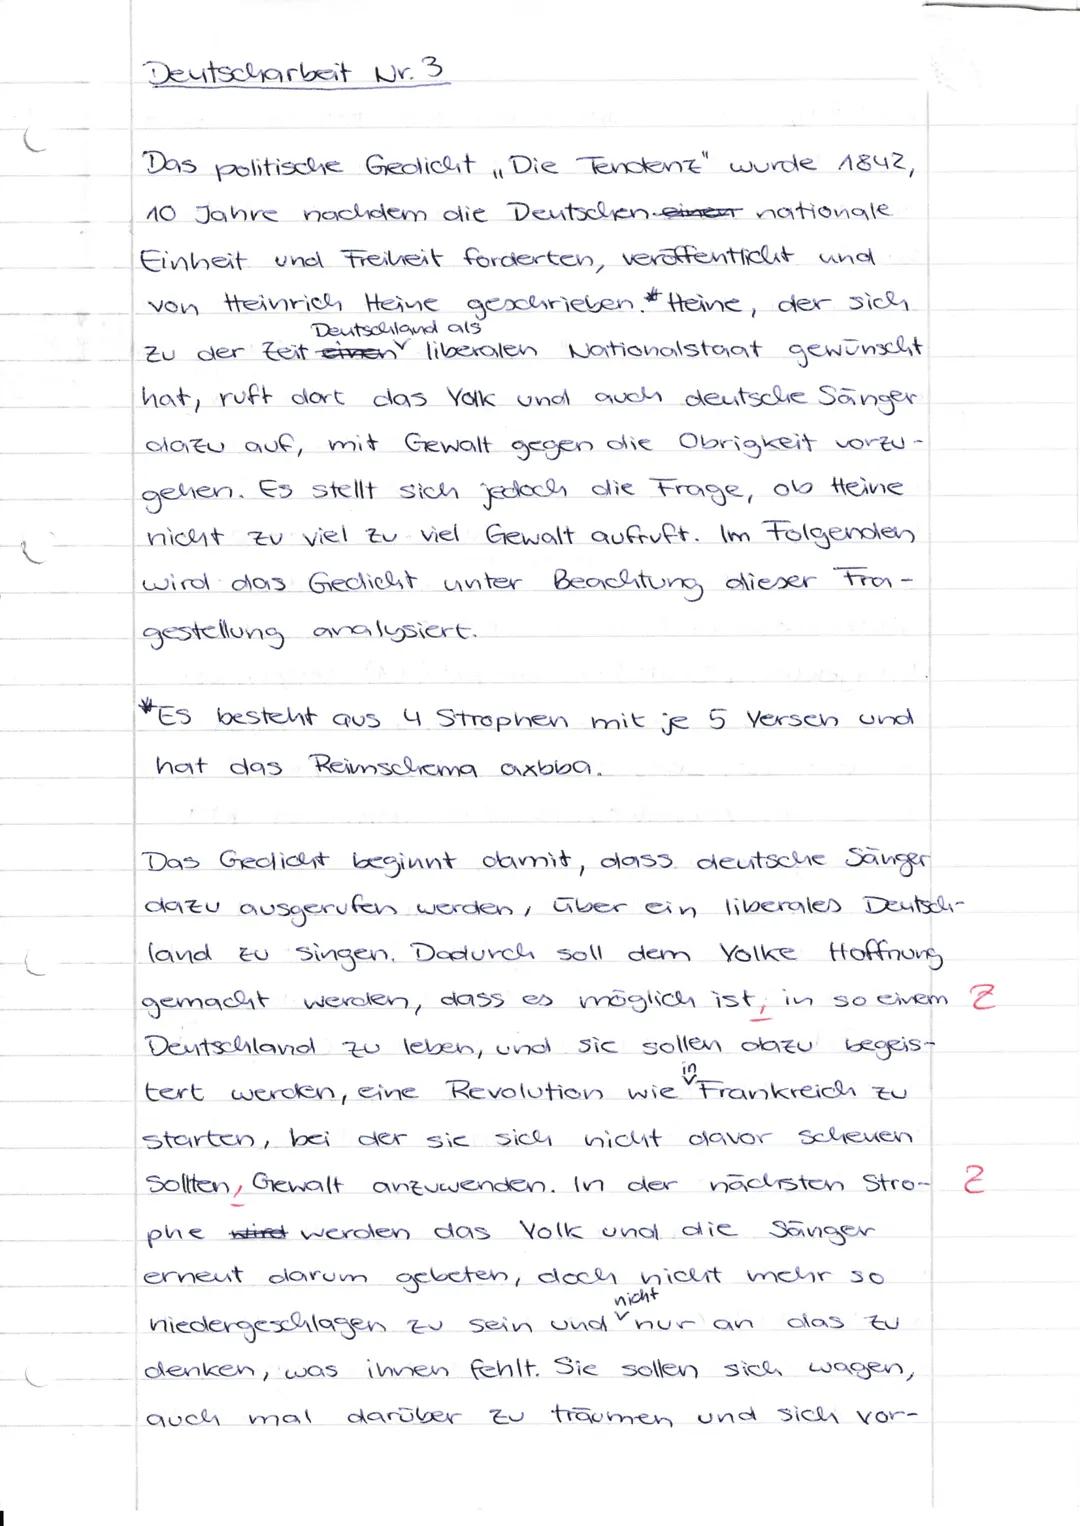 Deutscharbeit Nr. 3
Das politische Gedicht „Die Tendenz" wurde 1842,
10 Jahre nachdem die Deutschen einer nationale
Einheit und Freiheit forderten, veröffentlicht und
von Heinrich Heine geschrieben.* Heine, der sich
Deutschland als
zu der Zeit einen liberalen Nationalstaat gewünscht
hat, ruft dort das Volk und auch deutsche Sänger
dazu auf, mit Gewalt gegen die Obrigkeit vorzu-
gehen. Es stellt sich jedoch die Frage, ob Heine
nicht zu viel zu viel Gewalt aufruft. Im Folgenden
wird das Gedicht unter Beachtung dieser Fra-
gestellung analysiert.
*Es besteht aus 4 Strophen mit je 5 Versen und
hat das Reimschema axbba.
Das Gedicht beginnt damit, dass deutsche Sänger
dazu ausgerufen werden, über ein liberales Deutsch-
land zu singen. Dadurch soll dem Volke Hoffnung
gemacht werden, dass es möglich ist, in so einem Z
Deutschland zu leben, und sie sollen dazu begeis-
in
tert werden, eine Revolution wie Frankreich zu
starten, bei der sie sich nicht davor scheuen
sollten, Gewalt anzuwenden. In der nächsten Stro- Z
phe wird werden das Volk und die Sänger
erneut darum gebeten, doch nicht mehr so
nicht
niedergeschlagen zu sein und nur an das zu
denken, was ihnen fehlt. Sie sollen sich wagen,
auch mal darüber zu träumen und sich vor-